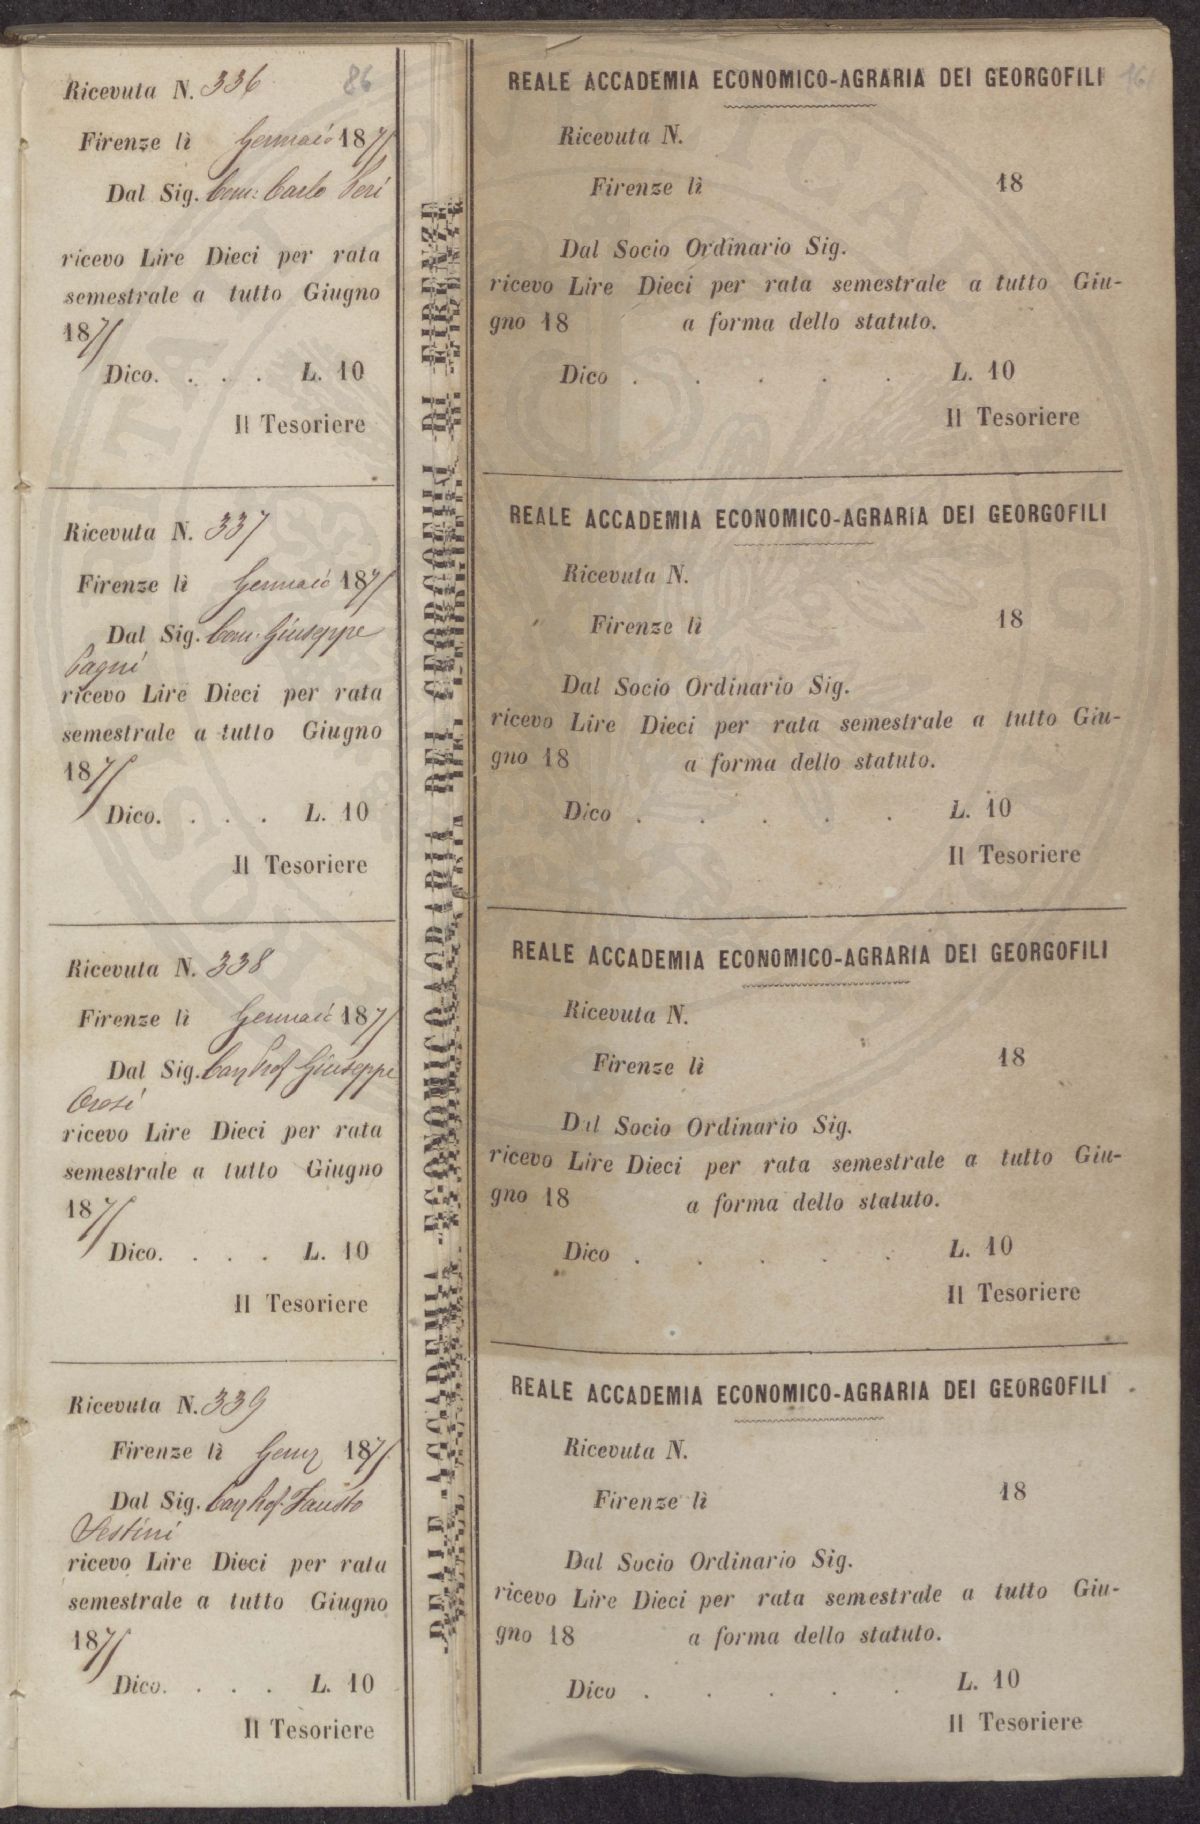 Ricevuta N. 336
86
Firenze lì Gennaio 1871
Dal Sig. Com: Carlo Peri
ricevo Lire Dieci per rata
semestrale a tutto Giugno
1871
Dico. . . . L. 10
Il Tesoriere
Ricevuta N. 337
Firenze lì Gennaio 1871
Dal Sig. Com. Giuseppe
Pagni
ricevo Lire Dieci per rata
semestrale a tutto Giugno
1871
Dico. . . . L. 10
Il Tesoriere
Ricevuta N. 338
Firenze lì Gennaio 1871
Dal Sig. Cav Prof Giuseppe
Orosi
ricevo Lire Dieci per rata
semestrale a tutto Giugno
1871
Dico. . . . L. 10
Il Tesoriere
Ricevuta N. 339
Firenze lì 1871
Dal Sig. Cav Prof. Fausto
Sestini
ricevo Lire Dieci per rata
semestrale a tutto Giugno
1871
Dico. . . . L. 10
Il Tesoriere
REALE ACCADEMIA ECONOMICO-AGRARIA DEI GEORGOFILI DI FIRENZE
REALE ACCADEMIA ECONOMICO-AGRARIA DEI GEORGOFILI
Ricevuta N.
Firenze lì 18
Dal Socio Ordinario Sig.
ricevo Lire Dieci per rata semestrale a tutto Giu-
gno 18 a forma dello statuto.
Dico . . . . . L. 10
Il Tesoriere
REALE ACCADEMIA ECONOMICO-AGRARIA DEI GEORGOFILI
Ricevuta N.
Firenze lì 18
Dal Socio Ordinario Sig.
ricevo Lire Dieci per rata semestrale a tutto Giu-
gno 18 a forma dello statuto.
Dico . . . . . L. 10
Il Tesoriere
REALE ACCADEMIA ECONOMICO-AGRARIA DEI GEORGOFILI
Ricevuta N.
Firenze lì 18
Dal Socio Ordinario Sig.
ricevo Lire Dieci per rata semestrale a tutto Giu-
gno 18 a forma dello statuto.
Dico . . . . . L. 10
Il Tesoriere
REALE ACCADEMIA ECONOMICO-AGRARIA DEI GEORGOFILI
Ricevuta N.
Firenze lì 18
Dal Socio Ordinario Sig.
ricevo Lire Dieci per rata semestrale a tutto Giu-
gno 18 a forma dello statuto.
Dico . . . . . L. 10
Il Tesoriere